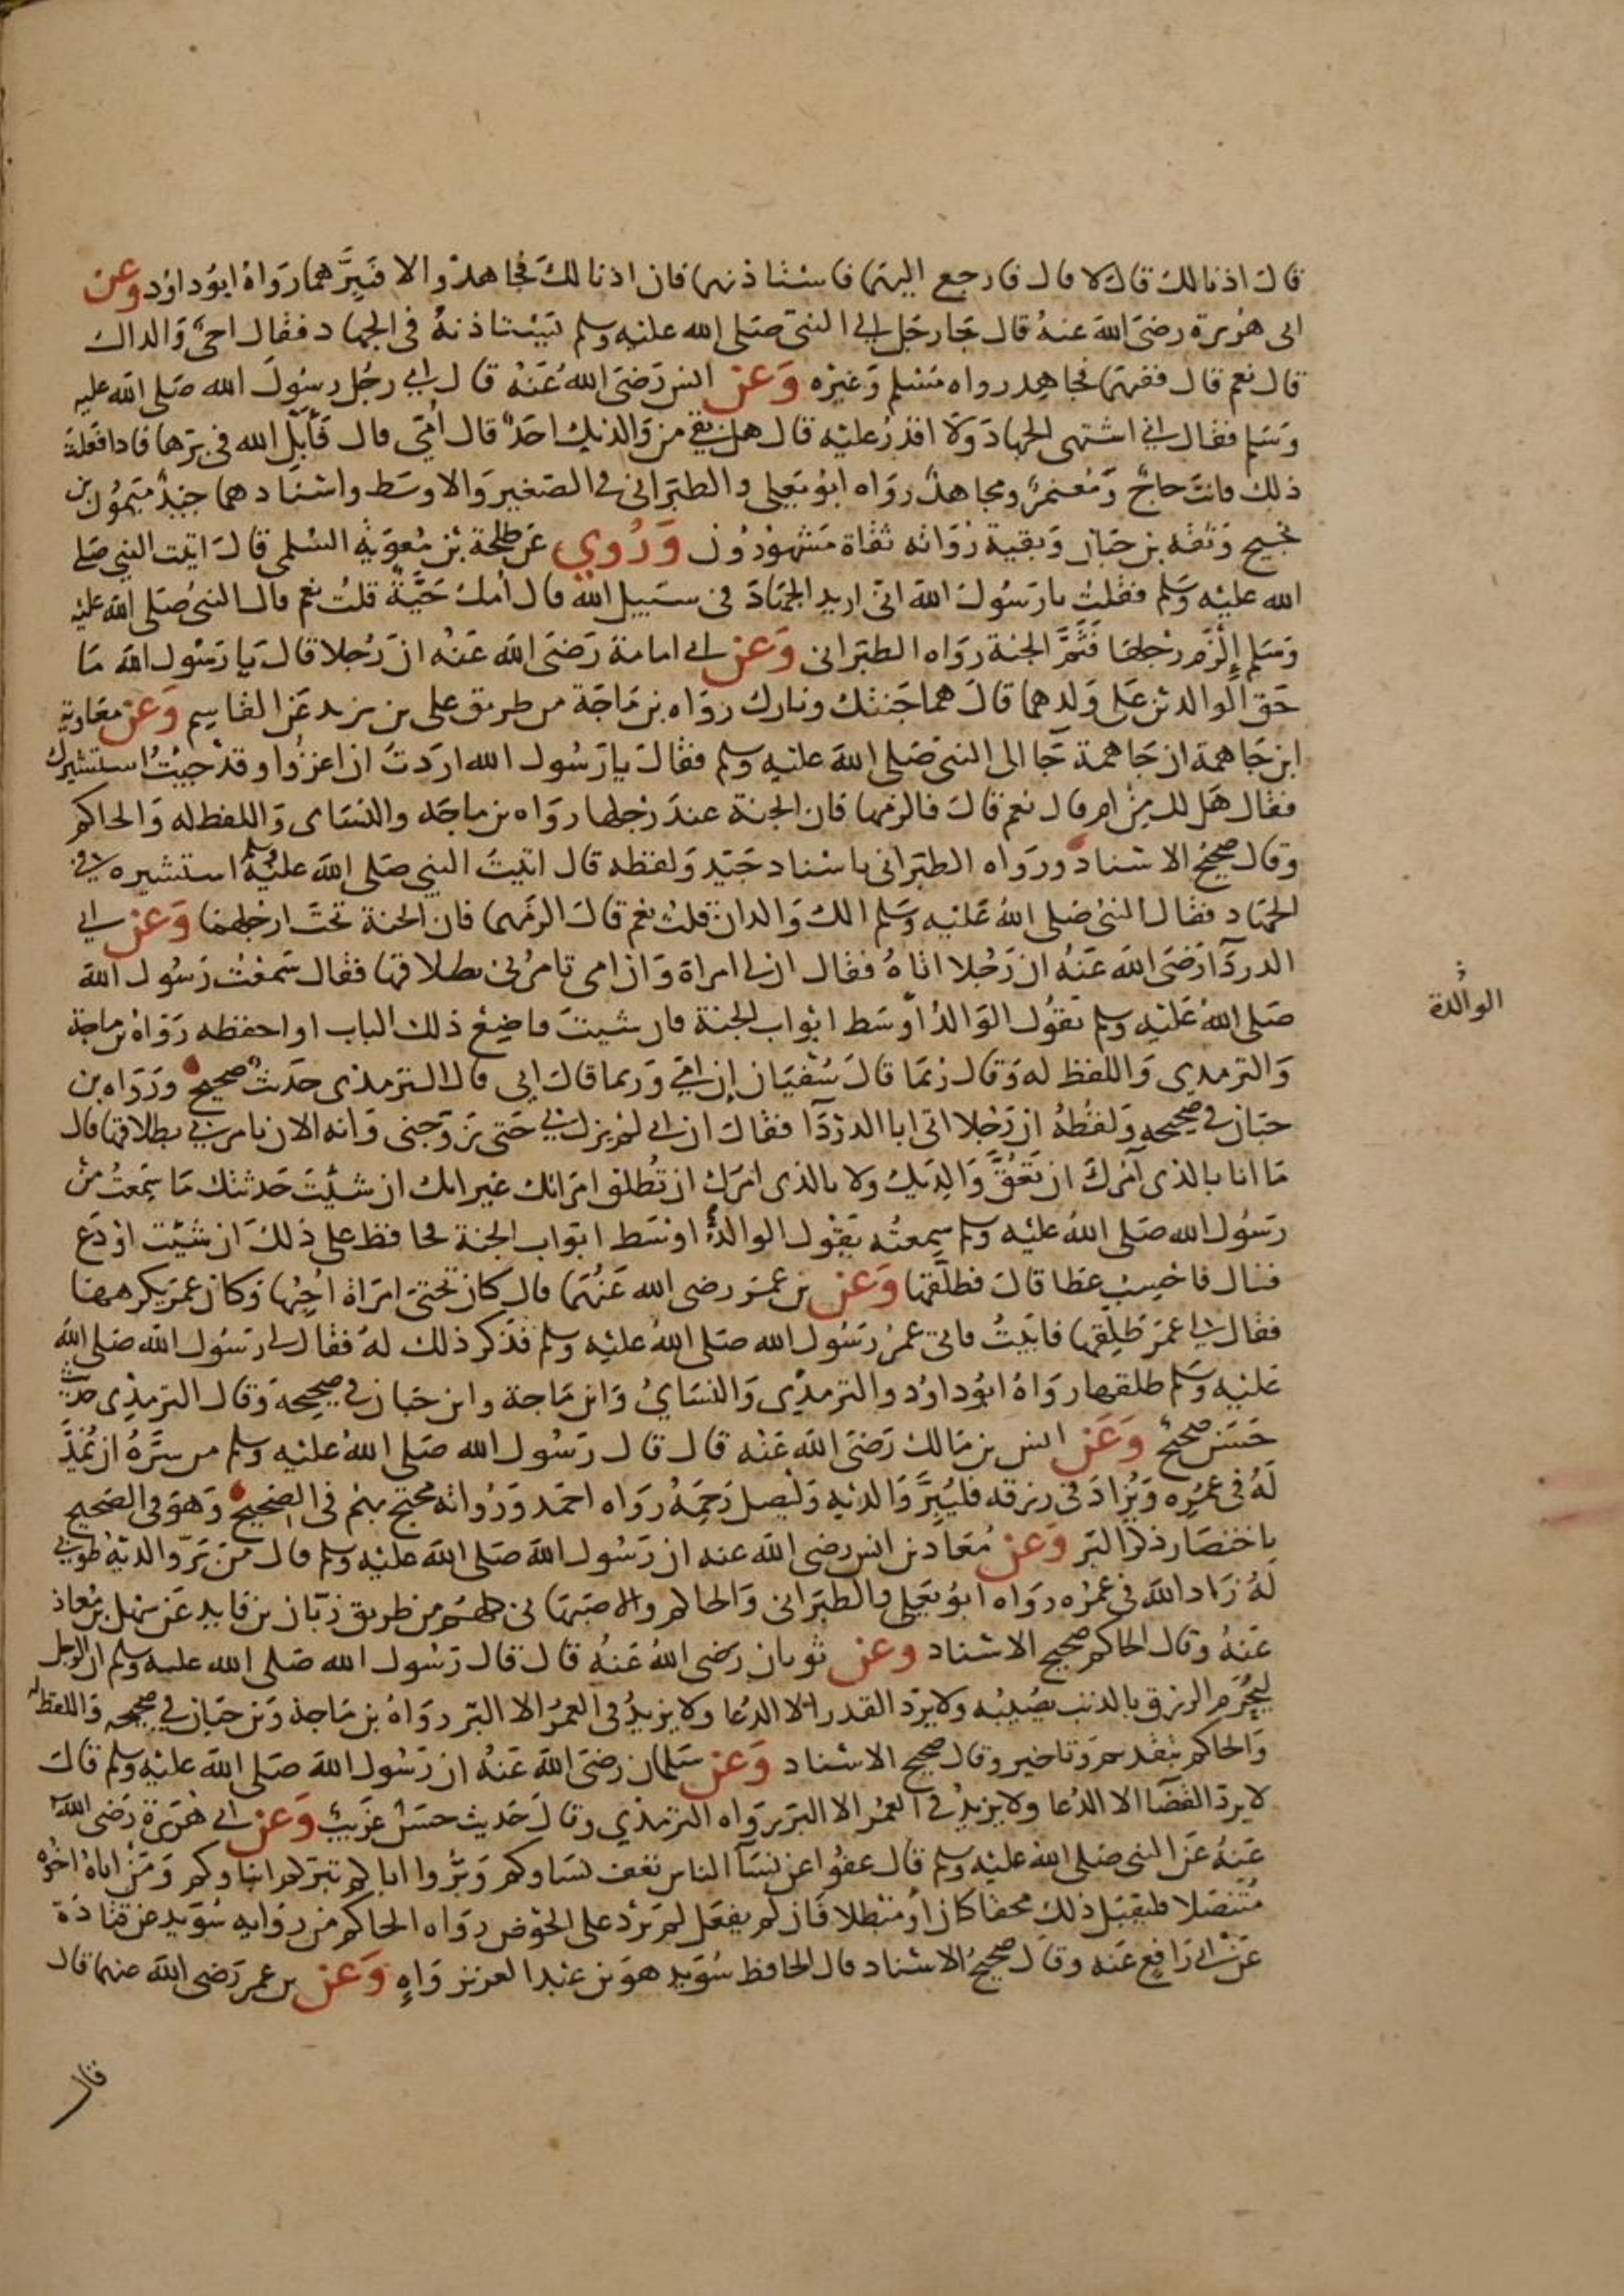 قال اذنا لك قال لا قال فارجع اليهما فاستأذنهما فان اذنا لك فجاهد والا فبرهما رواه ابو داود وعن
ابي هريرة رضي الله عنه قال جا رجل الى النبي صلى الله عليه وسلم يستاذنه في الجهاد فقال احي والداك
قال نعم قال ففيهما فجاهد رواه مسلم وغيره وعن انس رضي الله عنه قال اتى رجل رسول الله صلى الله عليه
وسلم فقال اني اشتهي الجهاد ولا اقدر عليه قال هل بقي من والديك احد قال امي قال فأبل الله في برها فاذا فعلت
ذلك فانت حاج ومعتمر ومجاهد رواه ابو يعلى والطبراني في الصغير والاوسط واسنادهما جيد ميمون بن
نجيح وثقه بن حبان وبقية رواته ثقاة مشهورون وروي عن طلحة بن معوية السلمي قال اتيت النبي صلى
الله عليه وسلم فقلت يا رسول الله اني اريد الجهاد في سبيل الله قال أمك حية قلت نعم قال النبي صلى الله عليه
وسلم الزم رجلها فثم الجنة رواه الطبراني وعن ابي امامة رضي الله عنه ان رجلا قال يا رسول الله ما
حق الوالدين على ولدهما قال هما جنتك ونارك رواه بن ماجة من طريق علي بن يزيد عن القاسم وعن معاوية
ابن جاهمة ان جاهمة جا الى النبي صلى الله عليه وسلم فقال يا رسول الله اردت ان اغزوا وقد جيت استشيرك
فقال هل لك من ام قال نعم قال فالزمها فان الجنة عند رجلها رواه بن ماجه والنساى واللفظ له والحاكم
وقال صحيح الاسناد ورواه الطبراني باسناد جيد ولفظه قال اتيت النبي صلى الله عليه وسلم استشيره في
الجهاد فقال النبي صلى الله عليه وسلم الك والدان قلت نعم قال الزمهما فان الجنة تحت ارجلهما وعن ابي
الدردآ رضي الله عنه ان رجلا اتاه فقال ان لي امراة وان امي تامرني بطلاقها فقال سمعت رسول الله
صلى الله عليه وسلم يقول الوالد اوسط ابواب الجنة فان شيت فاضع ذلك الباب او احفظه رواه بن ماجة
والترمذي واللفظ له وقال ربما قال سفيان إن امي وربما قال ابي قال الترمذي حديث صحيح ورواه بن
حبان في صحيحه ولفظه ان رجلا اتى ابا الدردآ فقال ان ابي لم يزل بي حتى تزوجني وانه الان يامرني بطلاقها قال
ما انا بالذي آمرك ان تعق والديك ولا بالذي امرك ان تطلق امراتك غير انك ان شيت حدثتك ما سمعت من
رسول الله صلى الله عليه وسلم سمعته يقول الوالد اوسط ابواب الجنة فحافظ على ذلك ان شيت او دع
قال فاحسب عطا قال فطلقها وعن بن عمر رضي الله عنهما قال كان تحتي امراة احبها وكان عمر يكرهها
فقال لي عمر طلقها فابيت فاتى عمر رسول الله صلى الله عليه وسلم فذكر ذلك له فقال لي رسول الله صلى الله
عليه وسلم طلقها رواه ابو داود والترمذي والنساي وابن ماجة وابن حبان في صحيحه وقال الترمذي حديث
حسن صحيح وعن انس بن مالك رضي الله عنه قال قال رسول الله صلى الله عليه وسلم من سره ان يمد
له في عمره ويزاد في رزقه فليبر والديه وليصل رحمه رواه احمد ورواته محتج بهم في الصحيح وهو في الصحيح
باختصار ذكر البر وعن معاذ بن انس رضي الله عنه ان رسول الله صلى الله عليه وسلم قال من بر والديه طوبى
له زاد الله في عمره رواه ابو يعلى والطبراني والحاكم والاصبهاني كلهم من طريق زبان بن فايد عن سهل بن معاذ
عنه وقال الحاكم صحيح الاسناد وعن ثوبان رضي الله عنه قال قال رسول الله صلى الله عليه وسلم ان الرجل
ليحرم الرزق بالذنب يصيبه ولا يرد القدر الا الدعا ولا يزيد في العمر الا البر رواه بن ماجة وبن حبان في صحيحه واللفظ له
والحاكم بتقديم وتاخير وقال صحيح الاسناد وعن سلمان رضي الله عنه ان رسول الله صلى الله عليه وسلم قال
لا يرد القضآ الا الدعا ولا يزيد في العمر الا البر رواه الترمذي وقال حديث حسن غريب وعن ابي هريرة رضي الله
عنه عن النبي صلى الله عليه وسلم قال عفوا عن نسآ الناس تعف نساوكم وبروا اباكم تبركم ابناوكم ومن اتاه اخوه
متنصلا فليقبل ذلك محقا كان أو مبطلا فان لم يفعل لم يرد على الحوض رواه الحاكم من رواية سويد عن قتادة
عن ابي رافع عنه وقال صحيح الاسناد قال الحافظ سويد هو بن عبد العزيز واه وعن بن عمر رضي الله عنهما قال
الوالدة
قال